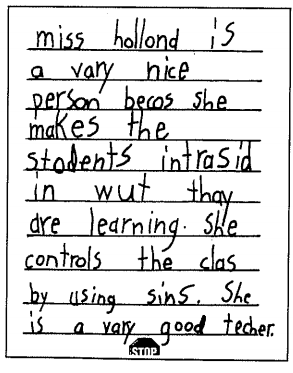 miss hollond is
a vary nice
person becos she
makes the
stodents intrasid
in wut thay
are learning. She
controls the clas
by using sins. She
is a vary good techer.
STOP